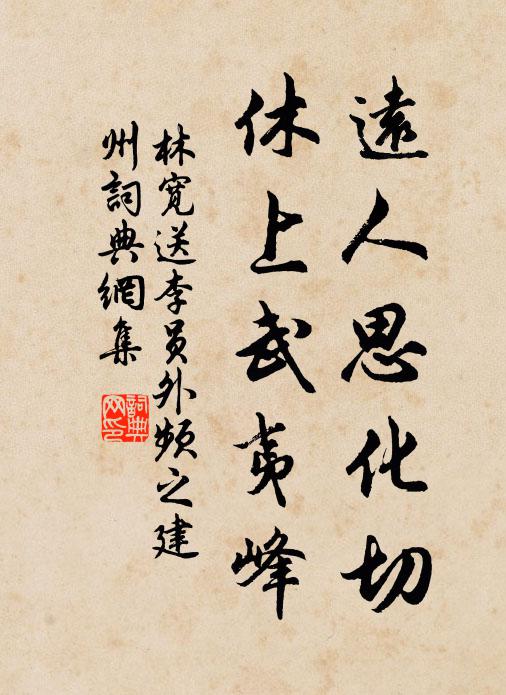 遠人思化切
休上武夷峰
林寬送李員外頻之建
州詞典網集
詞典
网印